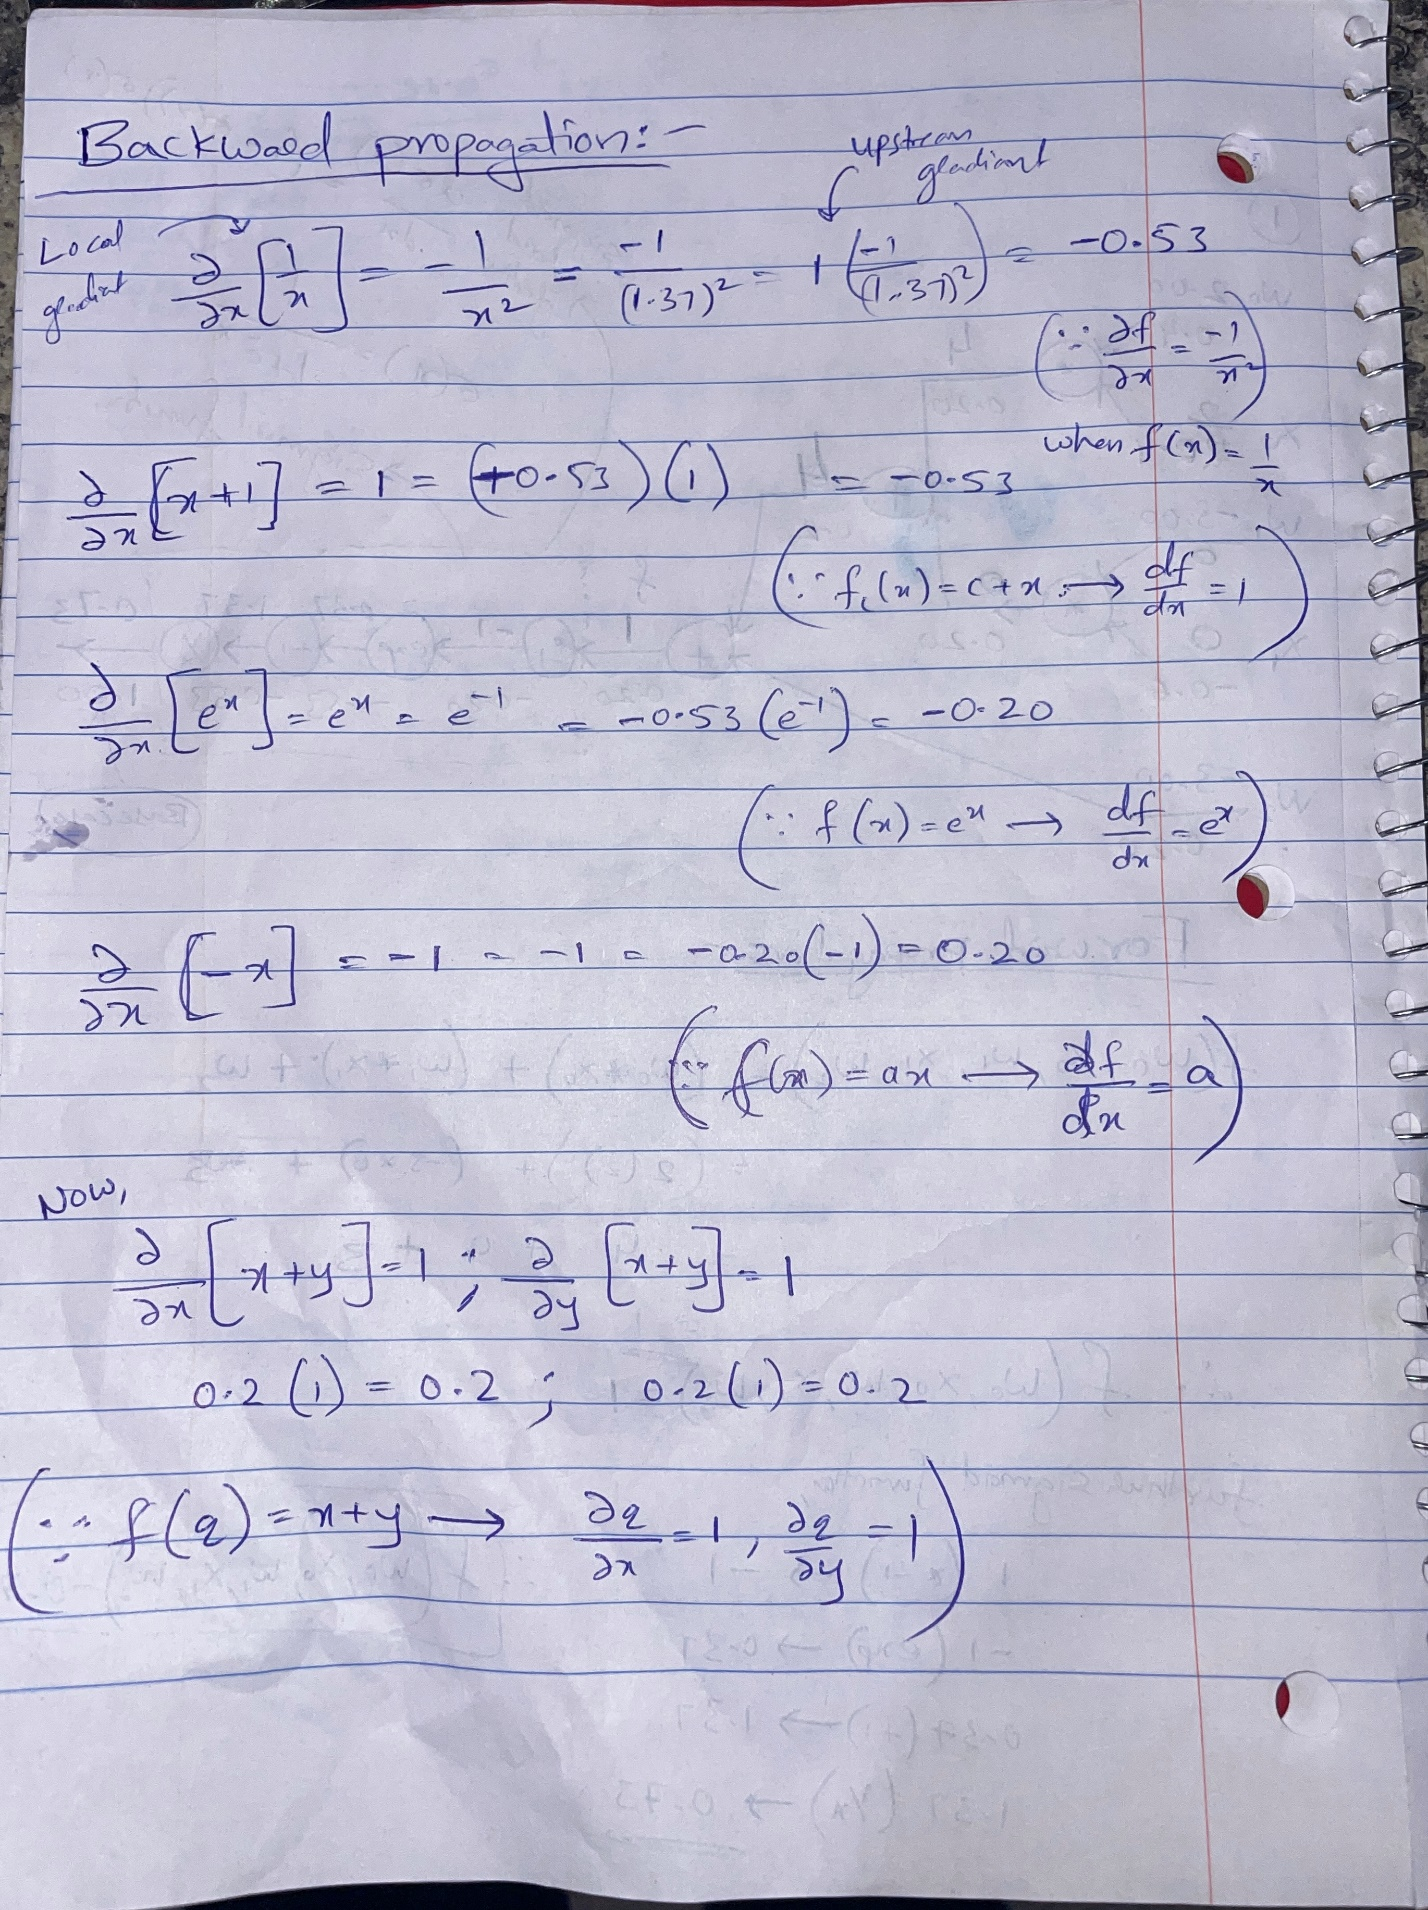 Backward propagation:-
upstream gradiant
Local gradient
∂/∂x [1/x] = -1/x² = -1/(1.37)² = 1 (-1/(1.37)²) = -0.53
(∵ ∂f/∂x = -1/x²)
when f(x) = 1/x
∂/∂x [x+1] = 1 = (-0.53)(1) = -0.53
(∵ f_c(x) = c+x → df/dx = 1)
∂/∂x [e^x] = e^x = e^-1 = -0.53(e^-1) = -0.20
(∵ f(x) = e^x → df/dx = e^x)
∂/∂x [-x] = -1 = -1 = -0.20(-1) = 0.20
(∵ f(x) = ax → df/dx = a)
Now,
∂/∂x [x+y] = 1 ; ∂/∂y [x+y] = 1
0.2 (1) = 0.2 ; 0.2 (1) = 0.2
(∵ f(q) = x+y → ∂q/∂x = 1, ∂q/∂y = 1)